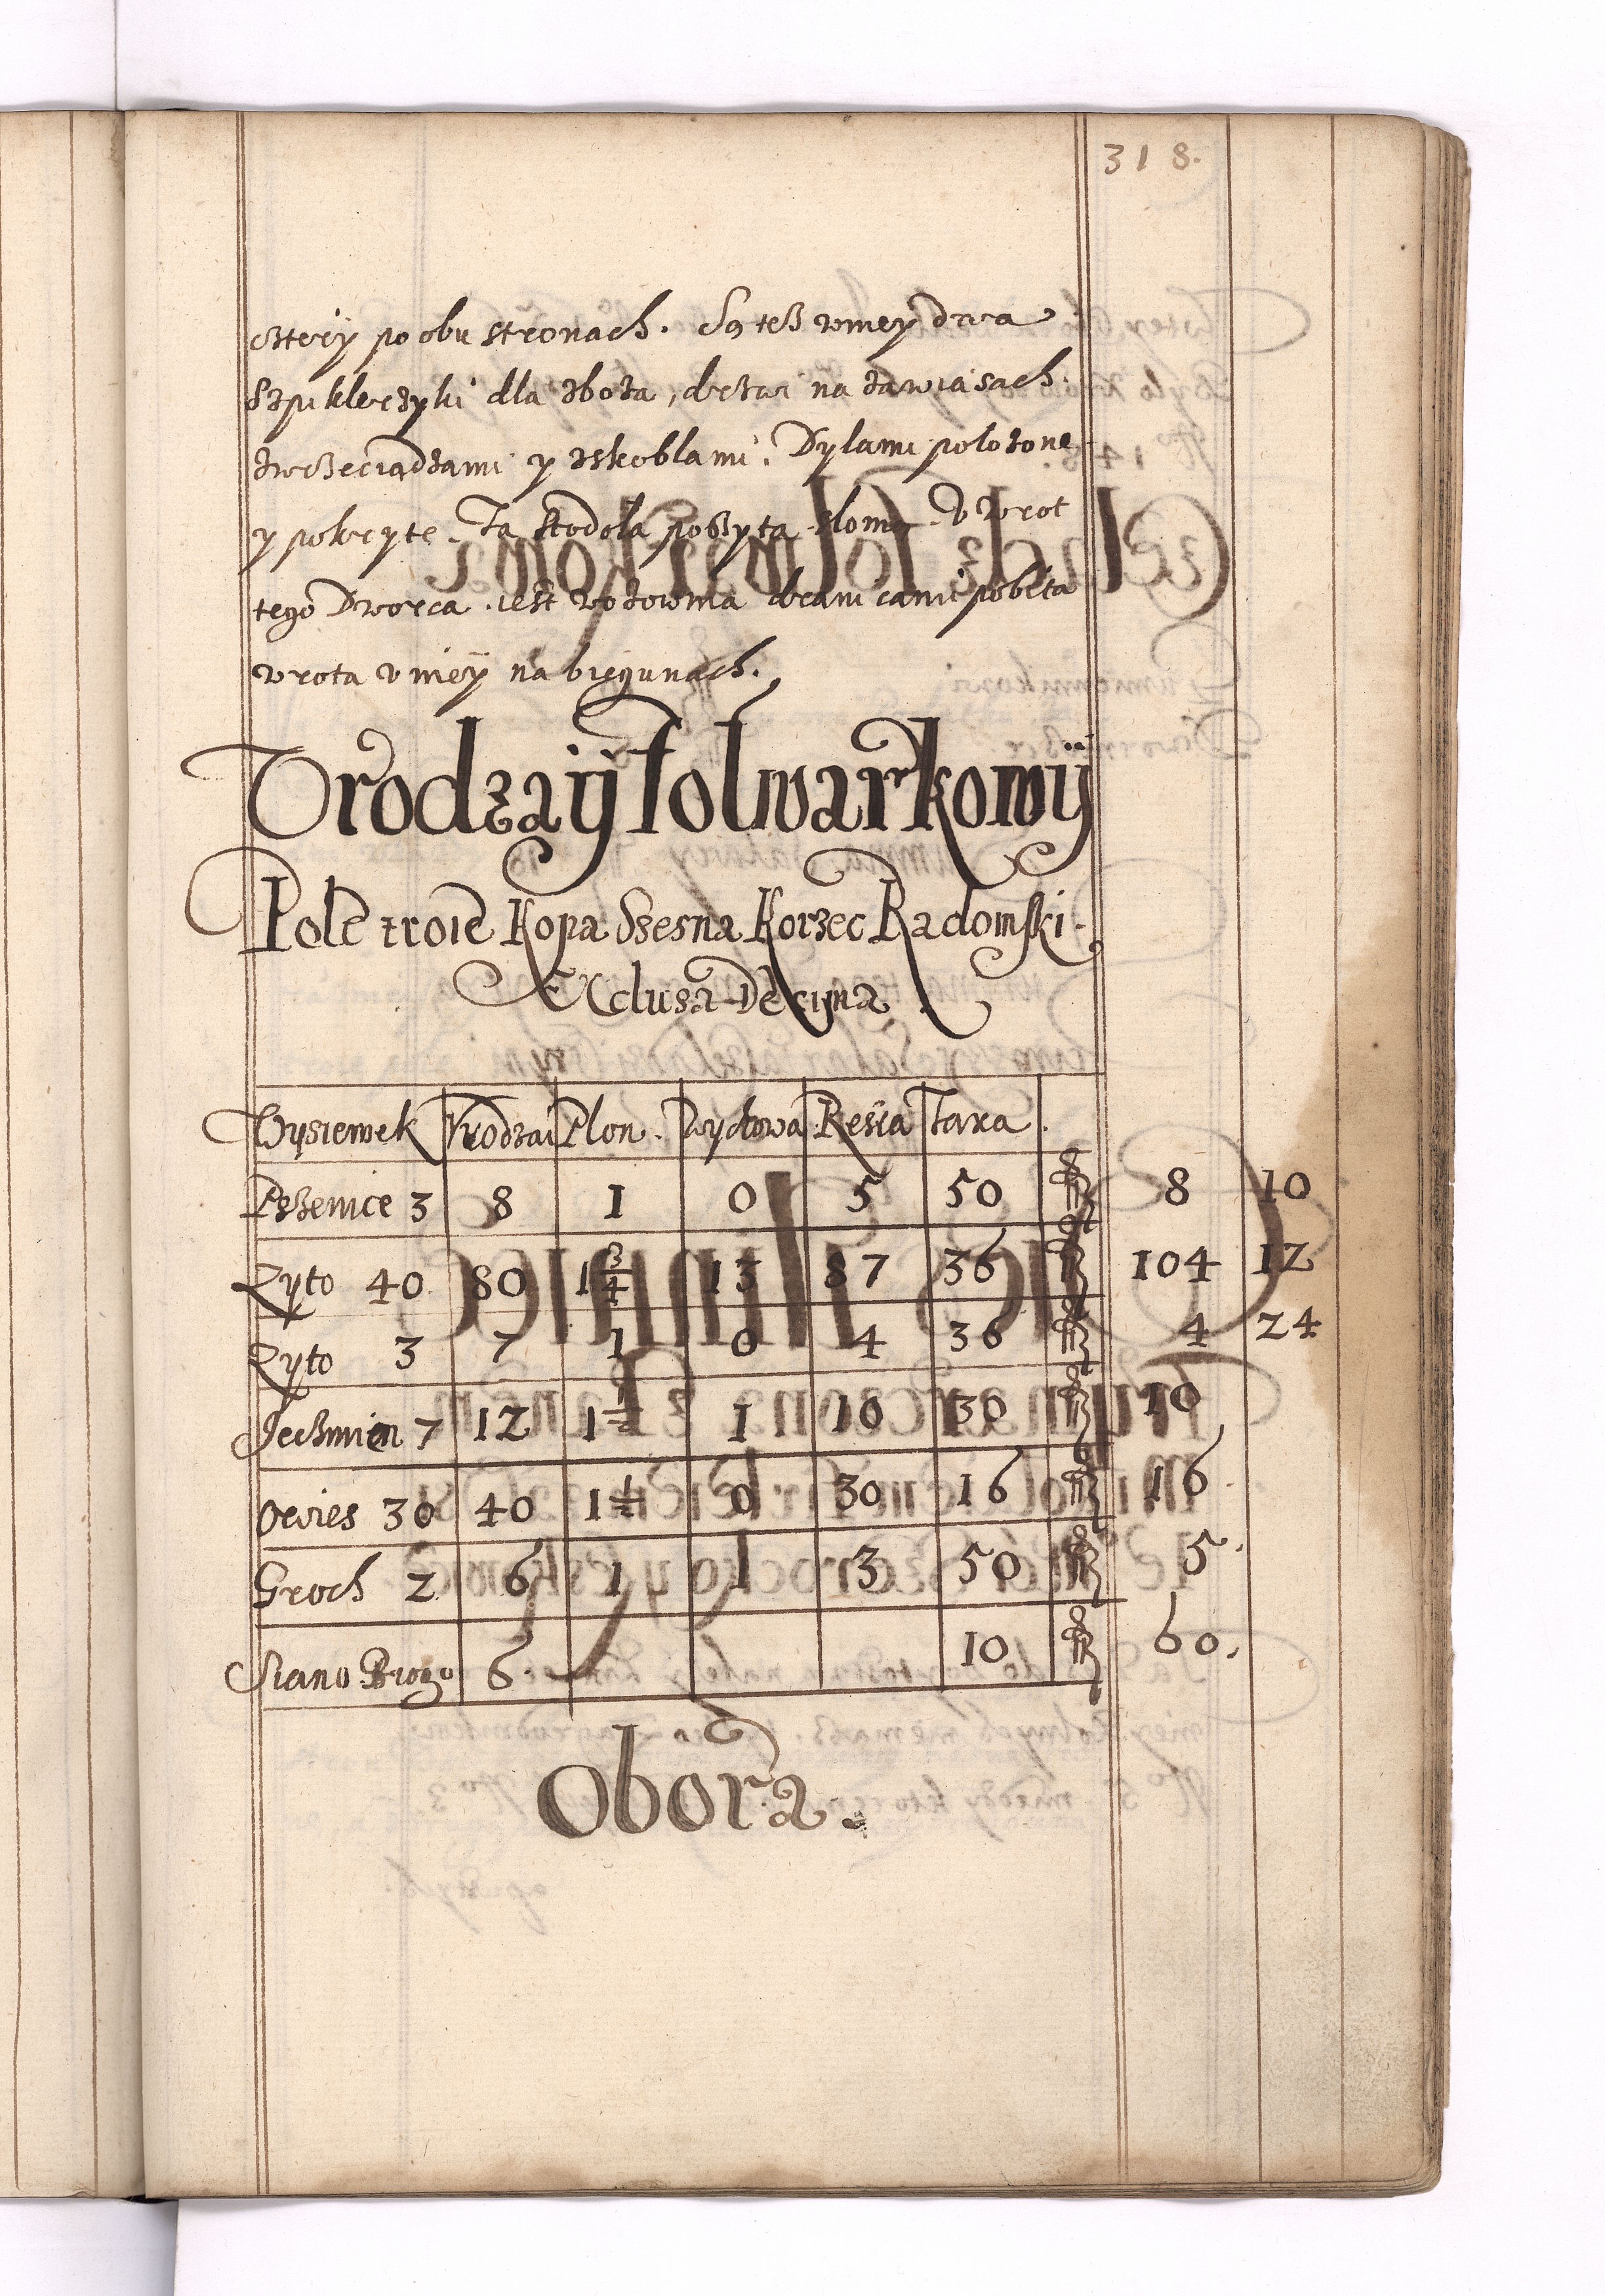 318.
czterÿ po obu stronach. Są tesz wniey dwa
Szpiklerzyki dla zboza, drzwi na zawiasach.
zwrzeciądzami y zskoblami. Dylami polozone
y pokryte. Ta stodola poszyta slomą. V wrot
tego Dworca iest wozownia dranicami pobita
wrota v nieÿ na biegunach.
Vrodzaÿ folwarkowÿ
Pole troie Kopa Szesna Korzec Radomski.
Exclusa Decima
Wysiewek Vrodzai Plon. Wychowa Resia Taxa.
Pszenice 3 8 1 0 5 50 fl 8 10
Zyto 40 80 1 3/4 13 87 36 fl 104 12
Zyto 3 7 1 0 4 36 fl 4 24
Jeczmien 7 12 1 1/2 1 10 30 fl 10
Owies 30 40 1 1/2 0 30 16 fl 16
Groch 2 6 1 1 3 50 fl 5.
Siano Brogo 6. 10 fl 60.
Obora.